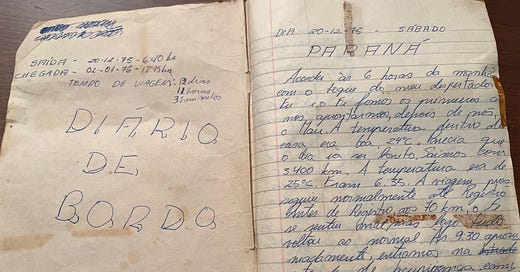 SAÍDA - 20-12-75 - 6:40 hs
CHEGADA - 02-01-76 - 18:15hs
TEMPO DE VIAGEM:
12 horas
35 minutos
DIÁRIO
DE
BORDO
DIA 20-12-75 - SÁBADO
PARANÁ
Acordei às 6 horas da manhã
com o toque do meu despertador.
Eu e o Fi fomos os primeiros a
nos aprontarmos, depois de nós,
o Mau. A temperatura dentro de
casa era boa 24°C. Parecia que
o dia ia ser bonito. Saímos com
5.400 km. A temperatura era de
25°C. Eram 6:35. A viagem pros
segue normalmente até Registro
Antes de Registro, aos 70 km, o
se sentiu mal, mas logo tudo
voltou ao normal. Às 9:30 aproxi
madamente, entramos na